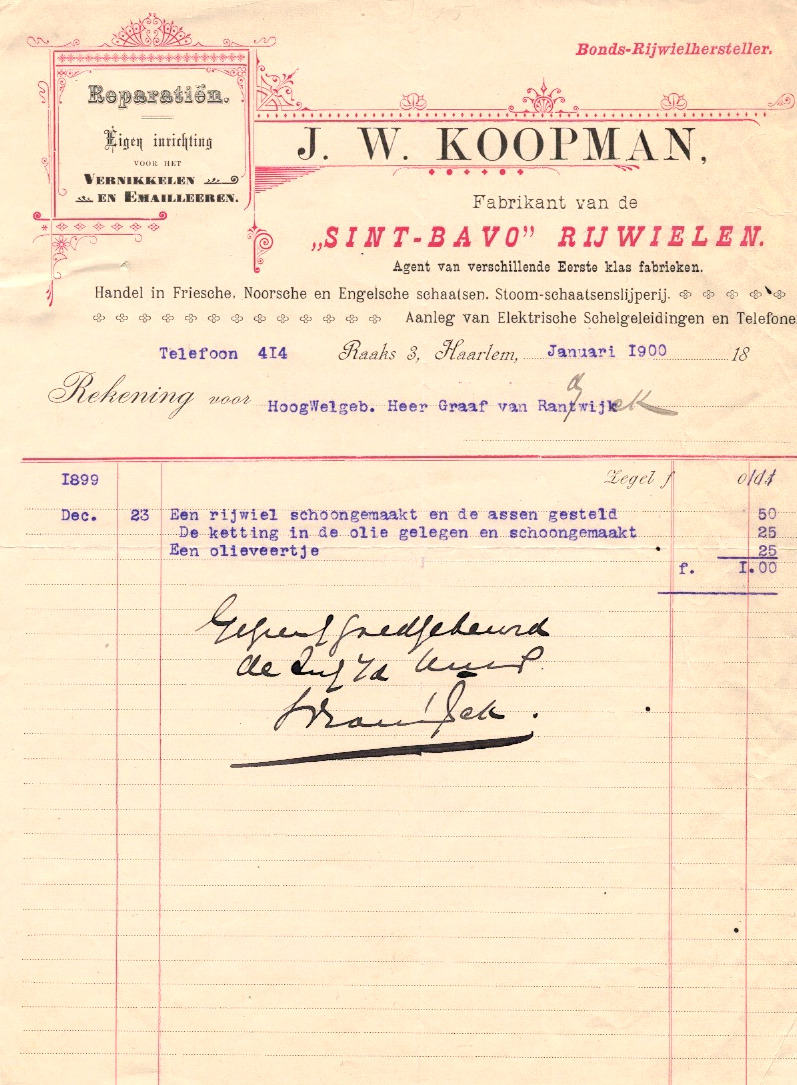 Bonds-Rijwielhersteller.
Reparatiën.
Eigen inrichting
VOOR HET
VERNIKKELEN
EN EMAILLEEREN.
J. W. KOOPMAN,
Fabrikant van de
„SINT-BAVO” RIJWIELEN.
Agent van verschillende Eerste klas fabrieken.
Handel in Friesche, Noorsche en Engelsche schaatsen. Stoom-schaatsenslijperij.
Aanleg van Elektrische Schelgeleidingen en Telefone
Telefoon 414 Raaks 3, Haarlem, Januari 1900 18
Rekening voor HoogWelgeb. Heer Graaf van Rantwijk
1899 Zegel f
Dec. 23 Een rijwiel schoongemaakt en de assen gesteld 50
De ketting in de olie gelegen en schoongemaakt 25
Een olieveertje 25
f. 1.00
goedgekeurd
de